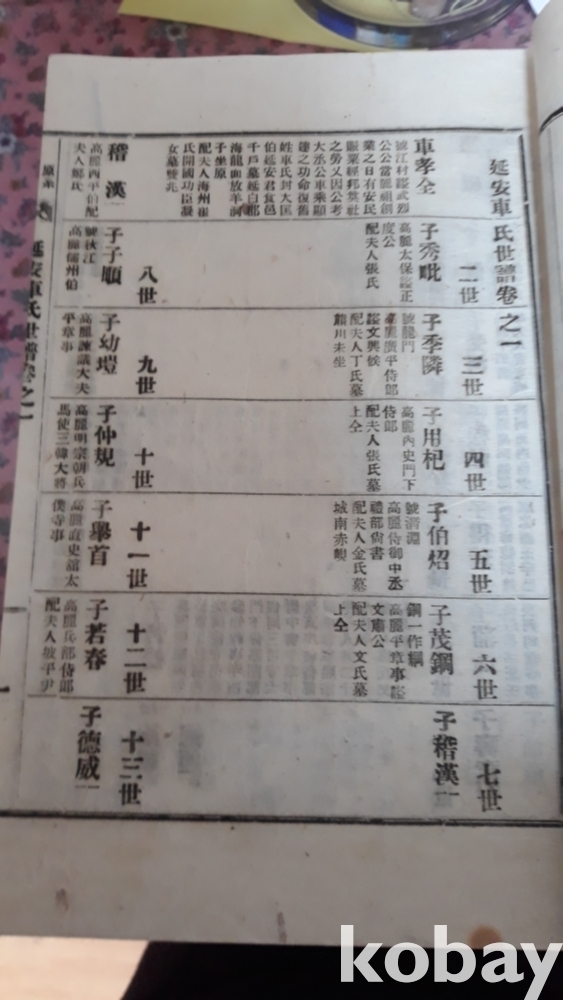 延安車氏世譜卷之一
車孝全
號江村謚武烈
公公當麗祖創
業之日有安民
賑業經邦奠社
之勞又因公考
大丞公車乘顯
達之功命復舊
姓車氏封大匡
伯延安君食邑
千戶墓延白郡
海龍面放羊洞
子坐原
配夫人海州崔
氏開國功臣凝
女墓雙兆
二世
子秀毗
高麗太保謚正
度公
配夫人張氏
三世
子季隣
號龍門
高麗廣平侍郎
謚文興候
配夫人丁氏墓
麟川未坐
四世
子用杞
高麗內史門下
侍郎
配夫人張氏墓
上仝
五世
子伯炤
號清淵
高麗侍御中丞
禮部尙書
配夫人金氏墓
城南赤峴
六世
子茂鋼
鋼一作綱
高麗平章事謚
文康公
配夫人文氏墓
上仝
七世
子稽漢
稽漢
高麗西平伯配
夫人鄭氏
八世
子子順
號秋江
高麗儒州伯
九世
子幼塏
高麗諫議大夫
平章事
十世
子仲規
高麗明宗朝兵
馬使三韓大將
十一世
子擧首
高麗直史館太
僕寺事
十二世
子若春
高麗兵部侍郎
配夫人坡平尹
十三世
子德威
延安車氏世譜卷之一
一
kobay